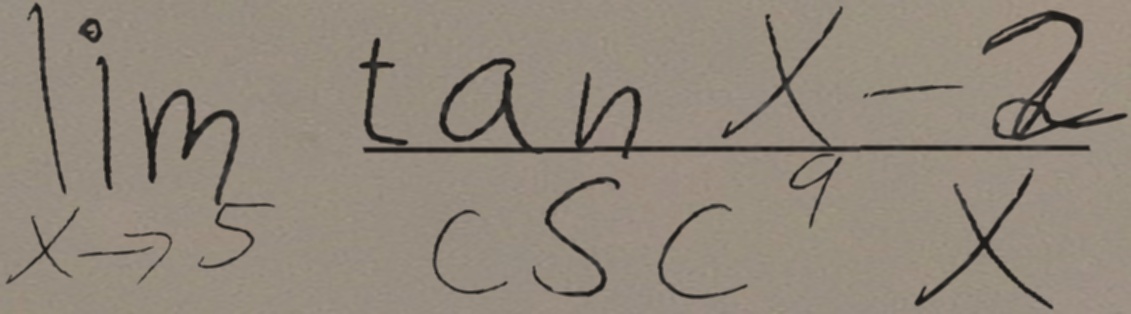 \lim_{x \to 5} \frac{\tan x - 2}{\csc^9 x}